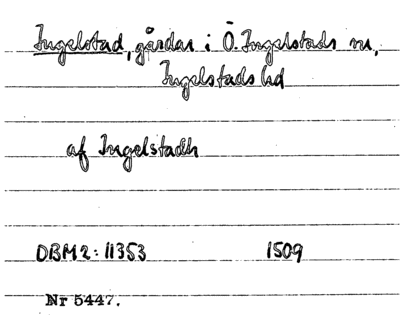 Ingelstad, gårdar i Ö. Ingelstads sn,
Ingelstads hd
af Ingelstadh
DBM 2: 11353 1509
Nr 5447.